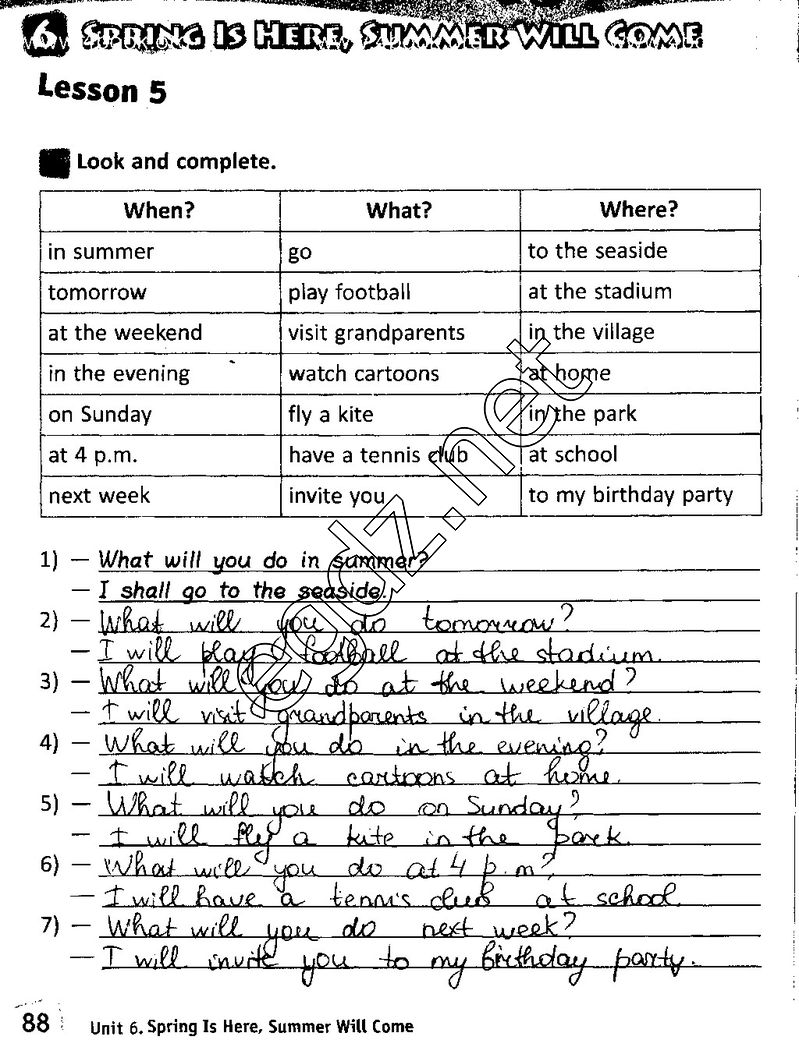 6 Spring Is Here, Summer Will Come
Lesson 5
Look and complete.
When? What? Where?
in summer go to the seaside
tomorrow play football at the stadium
at the weekend visit grandparents in the village
in the evening watch cartoons at home
on Sunday fly a kite in the park
at 4 p.m. have a tennis club at school
next week invite you to my birthday party
egdz.net
1) – What will you do in summer?
– I shall go to the seaside.
2) – What will you do tomorrow?
– I will play football at the stadium.
3) – What will you do at the weekend?
– I will visit grandparents in the village.
4) – What will you do in the evening?
– I will watch cartoons at home.
5) – What will you do on Sunday?
– I will fly a kite in the park.
6) – What will you do at 4 p.m?
– I will have a tennis club at school.
7) – What will you do next week?
– I will invite you to my birthday party.
88 Unit 6. Spring Is Here, Summer Will Come